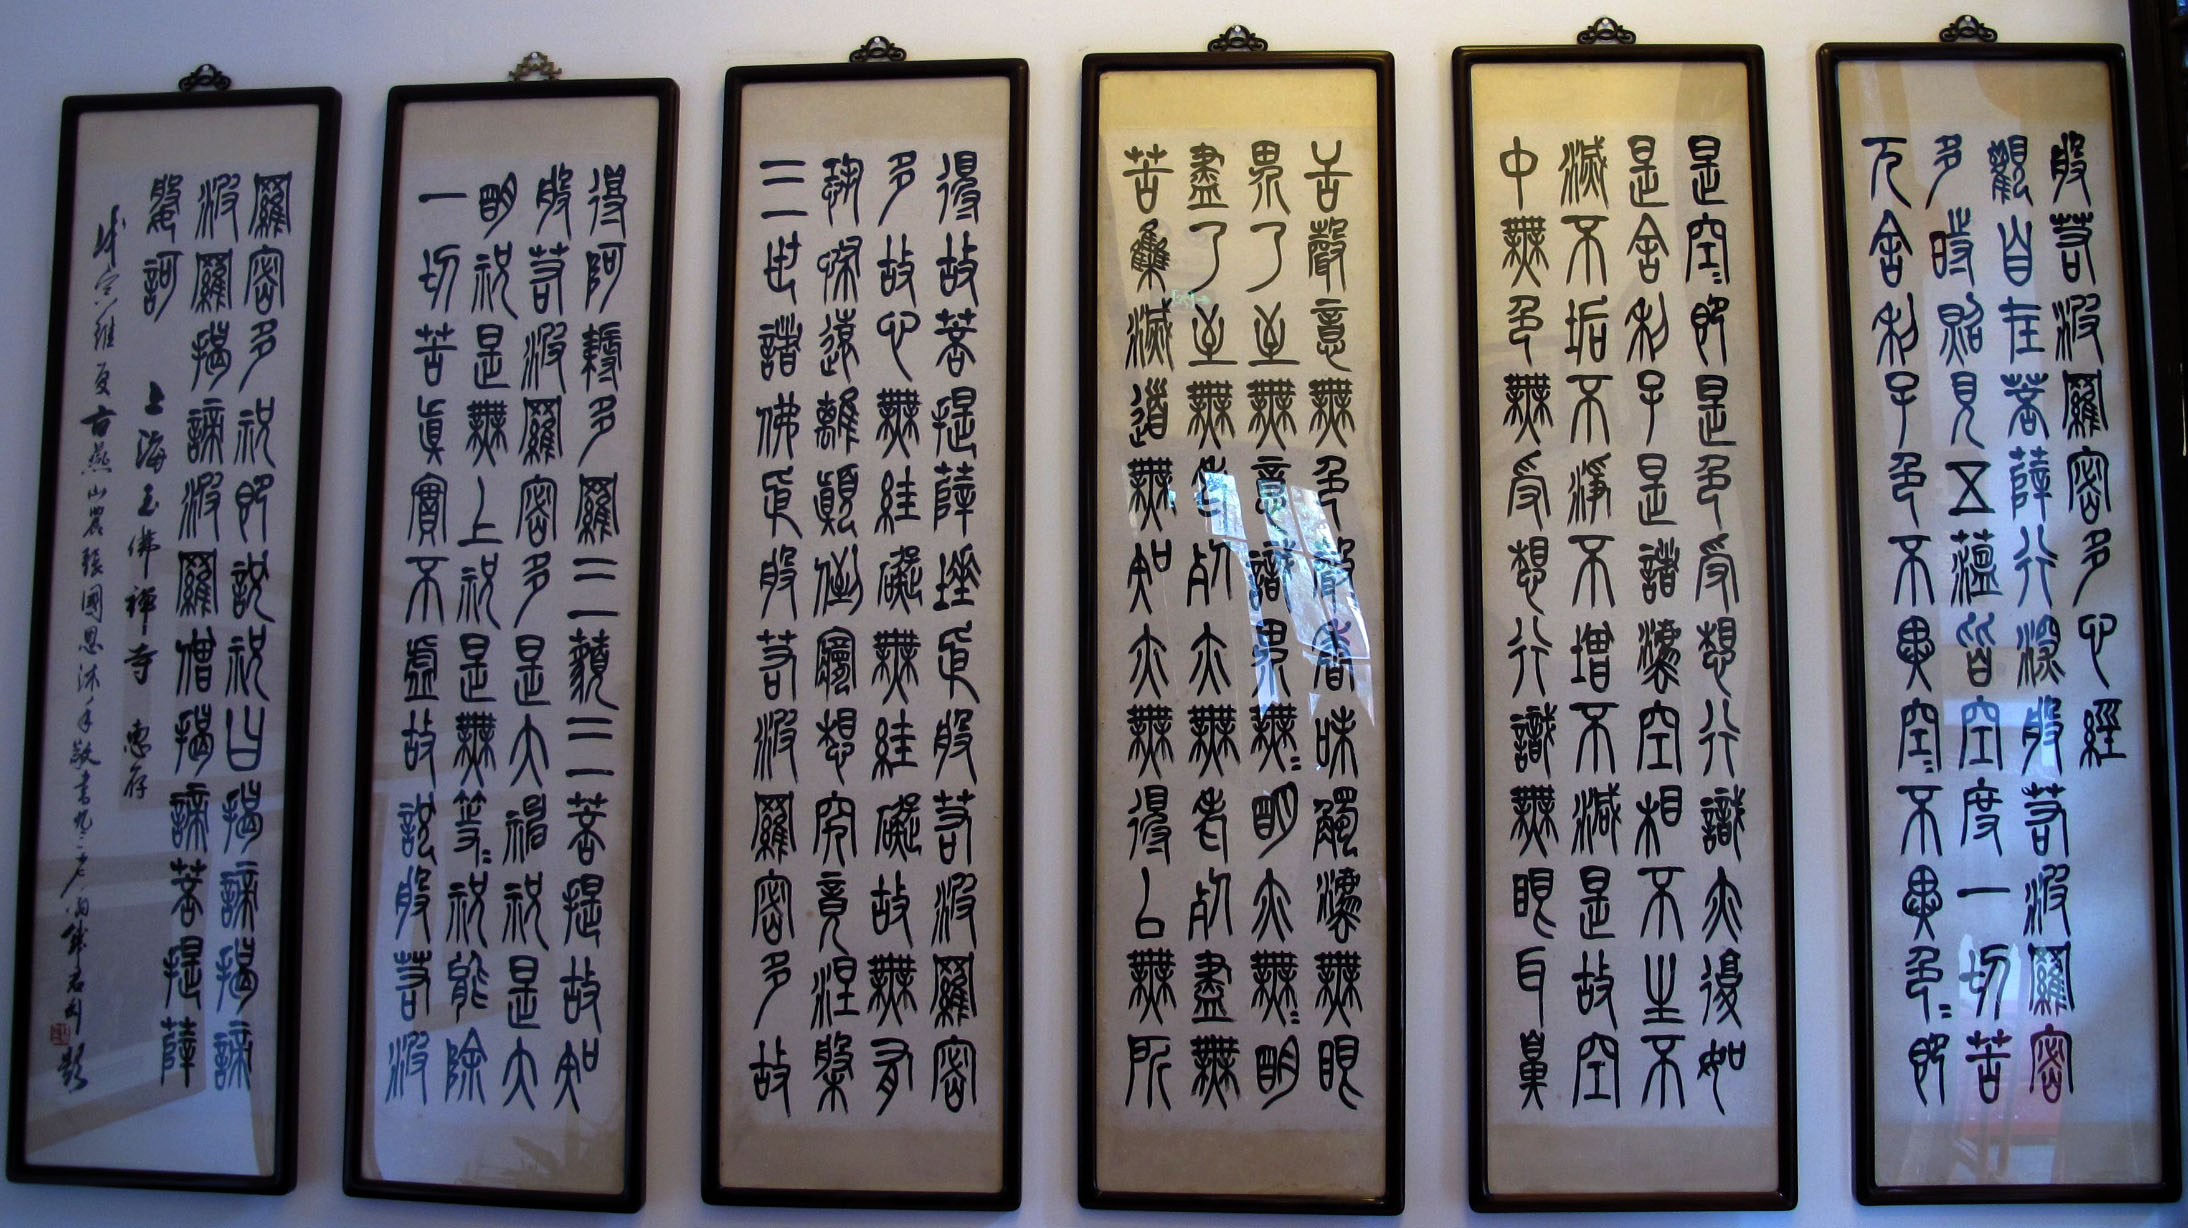 般若波羅密多心經
觀自在菩薩行深般若波羅密
多時照見五蘊皆空度一切苦
厄舍利子色不異空〻不異色〻即
是空〻即是色受想行識亦復如
是舍利子是諸灋空相不生不
滅不垢不淨不增不減是故空
中無色無受想行識無眼耳鼻
舌聲意無色聲香味觸灋無眼
界乃至無意識界無〻明亦無〻明
盡乃至無老死亦無老死盡無
苦集滅道無知亦無得以無所
得故菩提薩埵依般若波羅密
多故心無絓礙無絓礙故無有
恐怖遠離顛倒夢想究竟涅槃
三世諸佛依般若波羅密多故
得阿耨多羅三藐三菩提故知
般若波羅密多是大神祝是大
明祝是無上祝是無等〻祝能除
一切苦真實不虛故說般若波
羅密多祝即說祝曰揭諦揭諦
波羅揭諦波羅僧揭諦菩提薩
婆訶
上海玉佛禪寺 惠存
維夏古燕山農張國恩沐手敬書